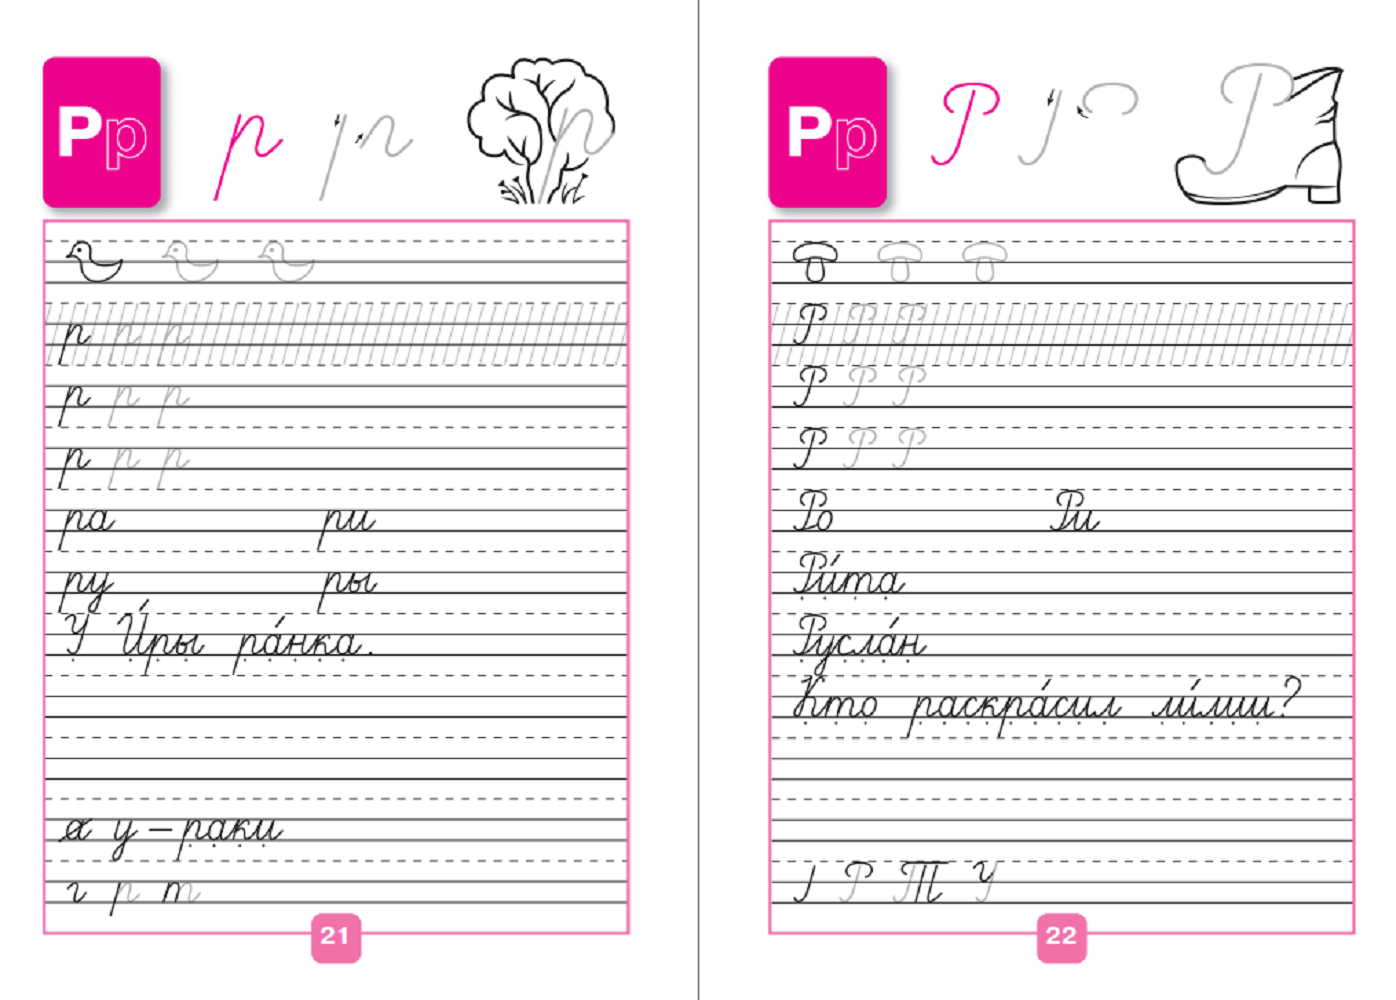 Рр р р р
р р р
р р р
р р р
ра ри
ру ры
У И́ры ра́нка.
а у – раки
г р т
21
Рр Р Р Р
Р Р Р
Р Р Р
Р Р Р
Ро Ри
Ри́та
Русла́н
Кто раскра́сил
Р Т У
22